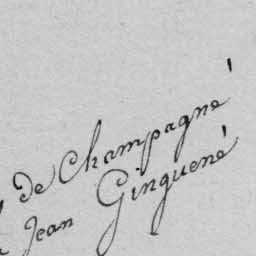 de Champagné
Jean Ginguené